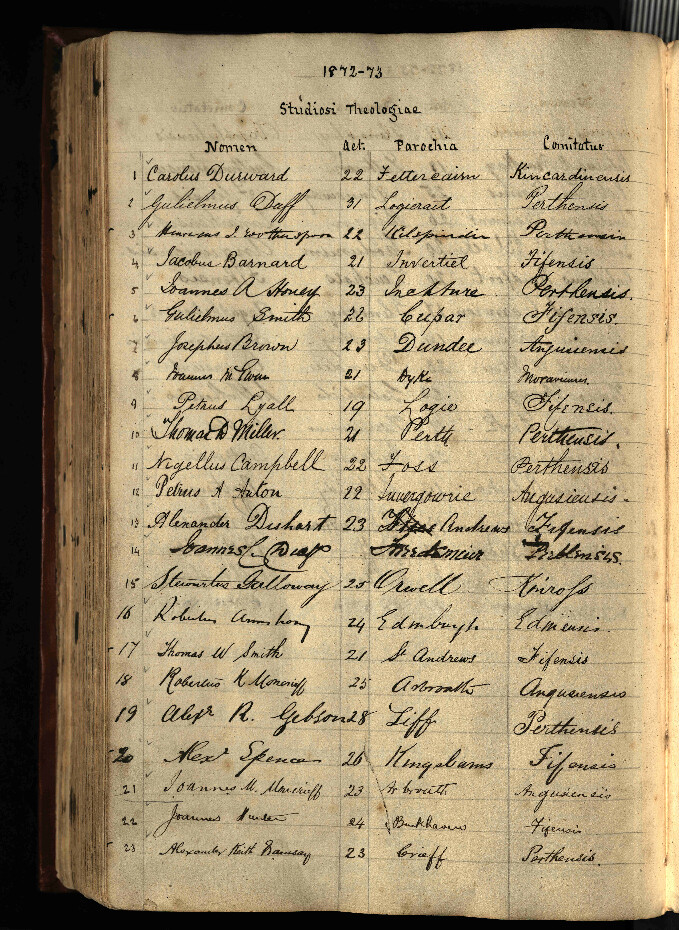 1872-73
Studiosi Theologiae
Nomen Aet. Parochia Comitatus
1 Carolus Durward 22 Fettercairn Kincardinensis
2 Gulielmus Duff 31 Logierait Perthensis
3 J. Wotherspoon 22 Kilspindie Perthensis
4 Jacobus Barnard 21 Invertiel Fifensis
5 Ioannes A Honey 23 Inchture Perthensis.
6 Gulielmus Smith 22 Cupar Fifensis.
7 Josephus Brown 23 Dundee Angusiensis
8 Ioannes McEwan 21 Dyke
9 Petrus Lyall 19 Logie Fifensis.
10 Thomas D Miller. 21 Perth Perthensis.
11 Nigellus Campbell 22 Foss Perthensis
12 Petrus A Anton 22 Invergowrie Angusiensis.
13 Alexander Dishart 23 Andrews Fifensis
14 Ioannes C. Duff
15 Stewartus Galloway 25 Orwell Kinross
16 Robertus Armstrong 24 Edinburgh
17 Thomas W Smith 21 St Andrews Fifensis
18 Robertus K Moncrieff 25 Arbroath Angusiensis
19 Alexr R. Gibson 28 Liff Perthensis
20 Alexr Spence 26 Kingsbarns Fifensis
21 Joannes M. Moncrieff 23 Arbroath Angusiensis
22 Joannes Hunter 24 Buckhaven Fifensis
23 Alexander Keith Ramsay 23 Crieff Perthensis.